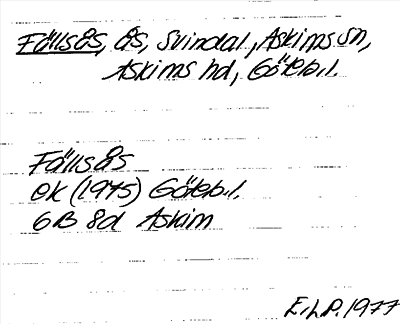 Fällsås, ås, Svindal, Askims sn,
Askims hd, Götebl.
Fällsås
ek (1975) Götebl.
6B 8d Askim
E.h.P. 1977